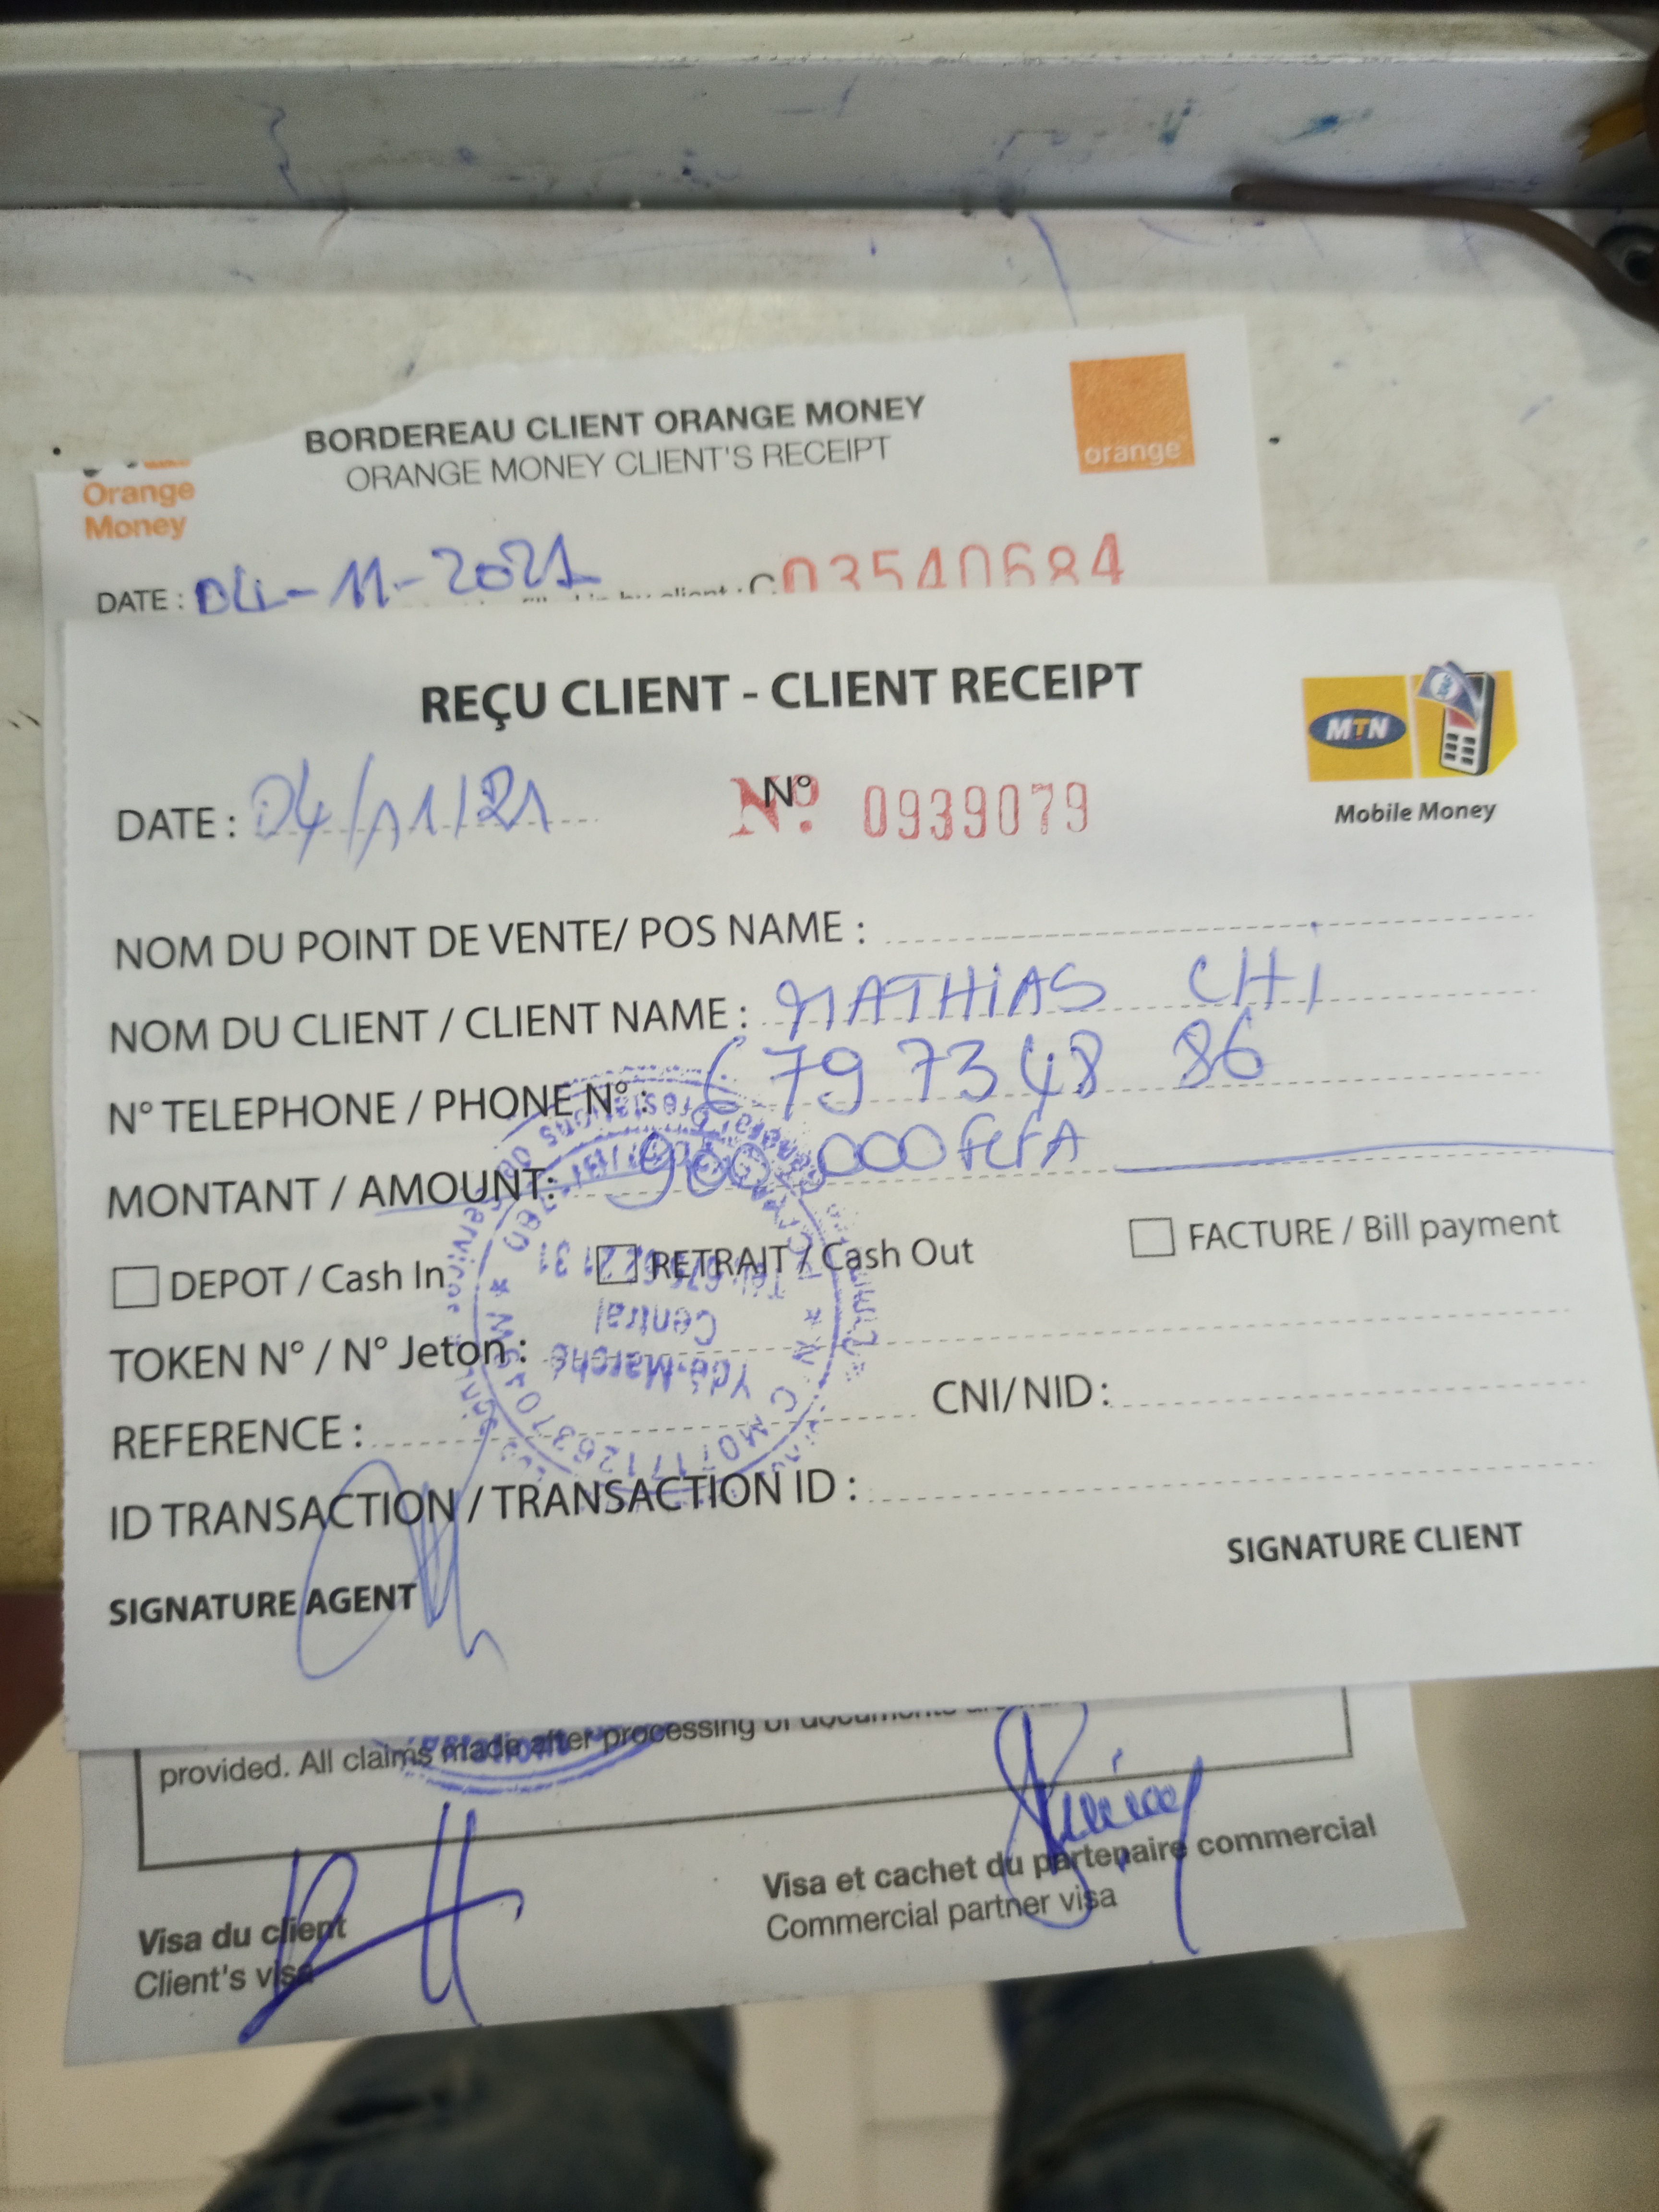 BORDEREAU CLIENT ORANGE MONEY
ORANGE MONEY CLIENT'S RECEIPT
orange
Orange
Money
DATE : 04-11-2021 03540684
REÇU CLIENT - CLIENT RECEIPT
MTN
Mobile Money
DATE : 04/11/21 N° Nº. 0939079
NOM DU POINT DE VENTE/ POS NAME :
NOM DU CLIENT / CLIENT NAME : MATHIAS CHI
N° TELEPHONE / PHONE N° : 679 73 48 86
MONTANT / AMOUNT: 900.000 FCFA
DEPOT / Cash In RETRAIT / Cash Out FACTURE / Bill payment
TOKEN N° / N° Jeton :
REFERENCE : CNI/NID :
ID TRANSACTION / TRANSACTION ID :
SIGNATURE AGENT SIGNATURE CLIENT
Ydé-Marché
Central
provided. All claims made after processing of documents
Visa du client
Client's visa
Visa et cachet du partenaire commercial
Commercial partner visa